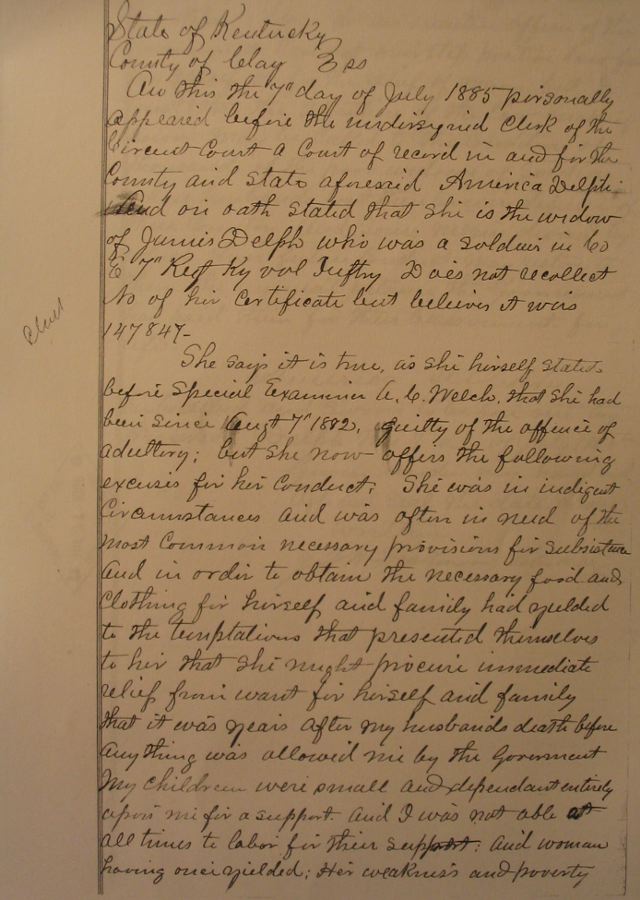 State of Kentucky
County of Clay } ss
On this the 7" day of July 1885 personally
appeared before the undersigned Clerk of the
Circuit Court a Court of record in and for the
County and State aforesaid America Delph
And on oath stated that she is the widow
of James Delph who was a soldier in Co
7" Regt Ky vol Inftry Does not recollect
No of her Certificate but believes it was
147847-
She says it is true, as she herself stated
before Special Examiner A. C. Welch, that she had
been since Augt 7" 1882, guilty of the offence of
adultery; but she now offers the following
excuses for her conduct; She was in indigent
Circumstances and was often in need of the
most common necessary provisions for subsistence
And in order to obtain the necessary food and
Clothing for herself and family had yielded
to the temptations that presented themselves
to her that she might procure immediate
relief from want for herself and family
that it was years after my husbands death before
any thing was allowed me by the Goverment
My children were small and dependant entirely
upon me for a support. And I was not able at
all times to labor for their support: And woman
having once yielded; Her weakness and poverty